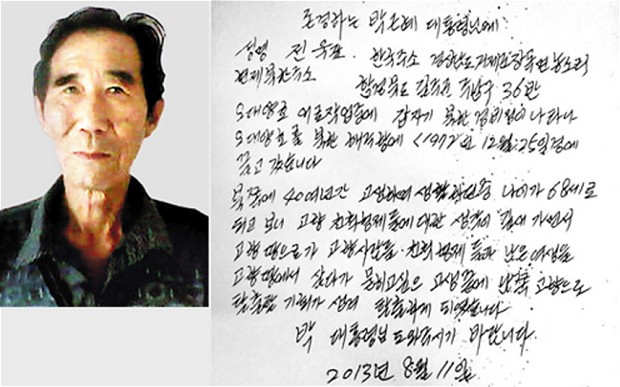 존경하는 박근혜 대통령님에
성명 전욱표. 한국주소 경상남도 거제도 장목면 농소리
현재북한주소 함경북도 길주군 36반
오대양호 어로작업중에 갑자기 북한 경비정이 나타나
오대양호를 북한 <1972년 12월:25일경에
끌고 갔습니다
북쪽에 40여년간 고생하며 생활하던중 나이가 68세로
되고 보니 고향 친척형제들에 대한 생각이 깊어 가면서
고향땅으로가 고향사람들. 친척 형제들과 남은 여생을
고향땅에서 살다가 묻히고싶은 남쪽 고향으로
탈출할 기회가 생겨 탈출하게 되였습니다
박 대통령님 도와주시기 바랍니다.
2013년 8월 11일